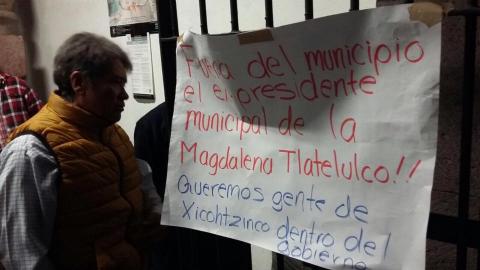 Fuera del municipio
el ex presidente
municipal de la
Magdalena Tlatelulco!!
Queremos gente de
Xicohtzinco dentro del
Gobierno